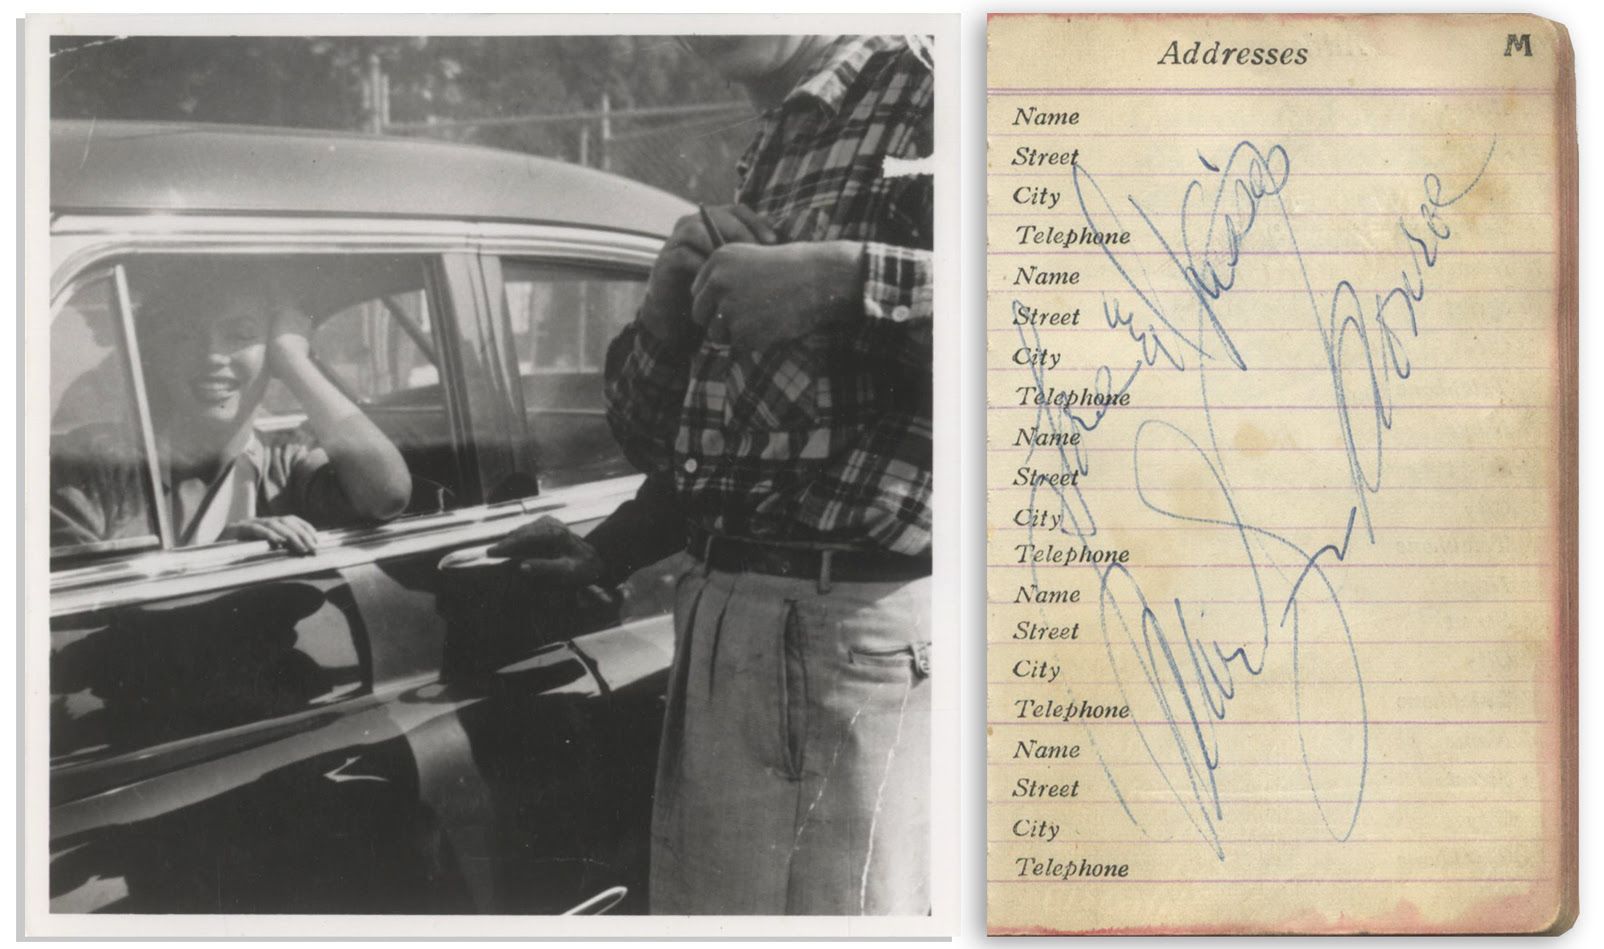 Addresses M
Name
Street
City
Telephone
Name
Street
City
Telephone
Name
Street
City
Telephone
Name
Street
City
Telephone
Name
Street
City
Telephone
Love & Kisses
Marilyn Monroe